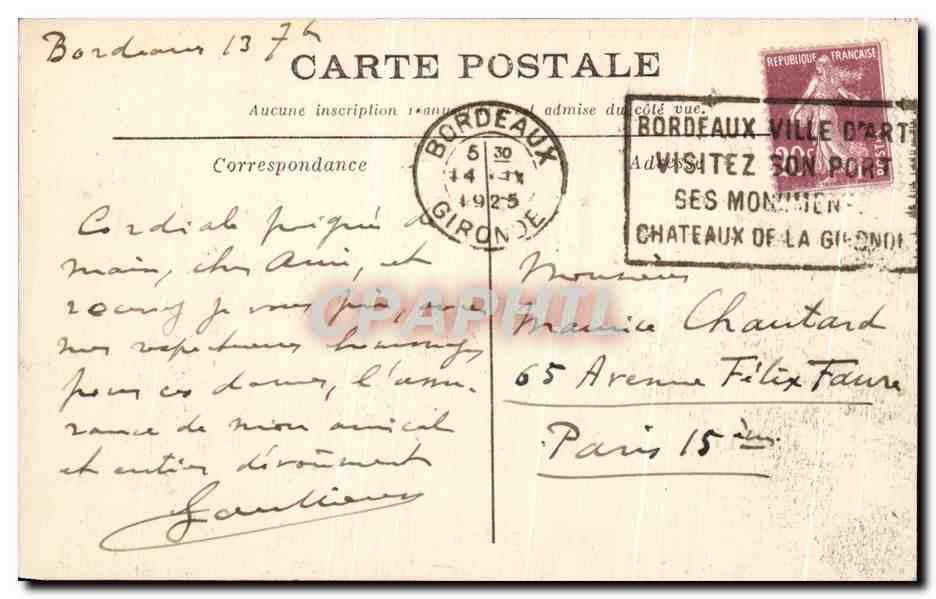 Bordeaux 13 7b
CARTE POSTALE
Aucune inscription admise du côté vue.
Correspondance
Adresse
BORDEAUX
5 30
14 - IX
1925
GIRONDE
REPUBLIQUE FRANÇAISE
20c
POSTES
BORDEAUX VILLE D'ART
VISITEZ SON PORT
SES MONUMEN
CHATEAUX DE LA GIRONDE
Cordiale poignée de
main, cher Ami, et
recevez je vous prie, avec
mes respectueux hommages
pour ces dames, l'assu-
rance de mon amical
et entier dévoûment
Monsieur
Maurice Chautard
65 Avenue Félix Faure
Paris 15ème
CPAPHIL